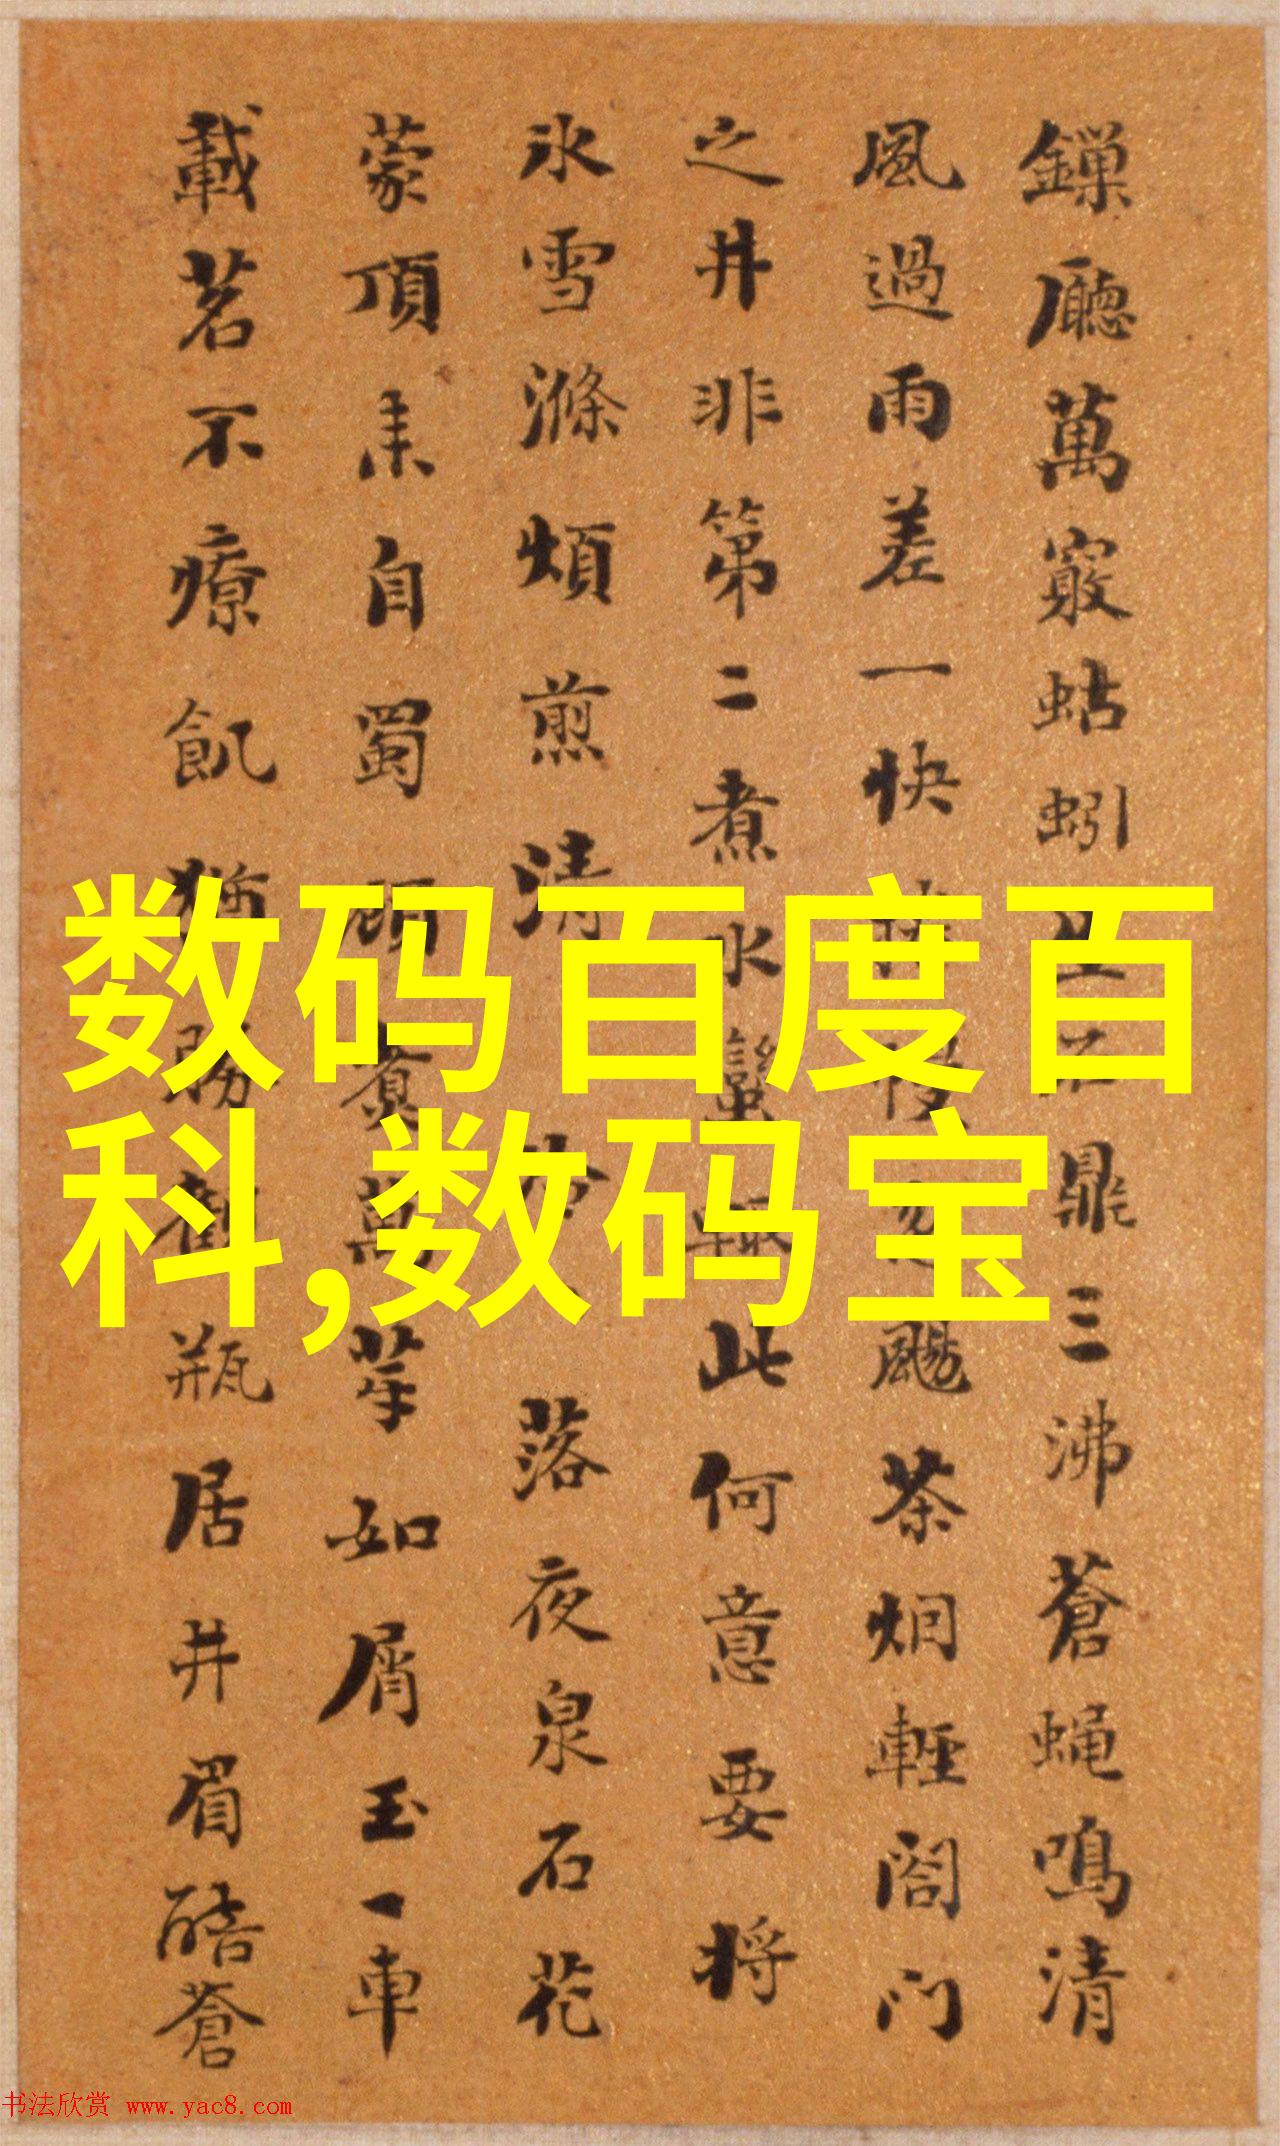 鏁廳萬竅蚯蚓 鼎三沸蒼蝇鳴清
風過雨差一快 颺茶烟輕閤門
之井非第二煮水 此何意要将
氷雪滌煩煎清 落夜泉石花
蒙頂来自蜀 萬芽如屑玉一車
載茗不療飢 瓶居井眉酷蒼
数码百度百
科,数码宝
书法欣赏 www.yac8.com